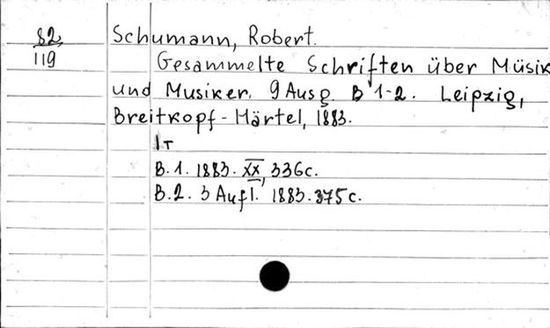 82,
119
Schumann, Robert.
Gesammelte Schriften über Müsik
und Musiker. 9 Ausg B 1-2. Leipzig,
Breitkopf-Härtel, 1883.
1т
B.1. 1883. XX, 336c.
B.2. 3 Aufl. 1883. 375c.